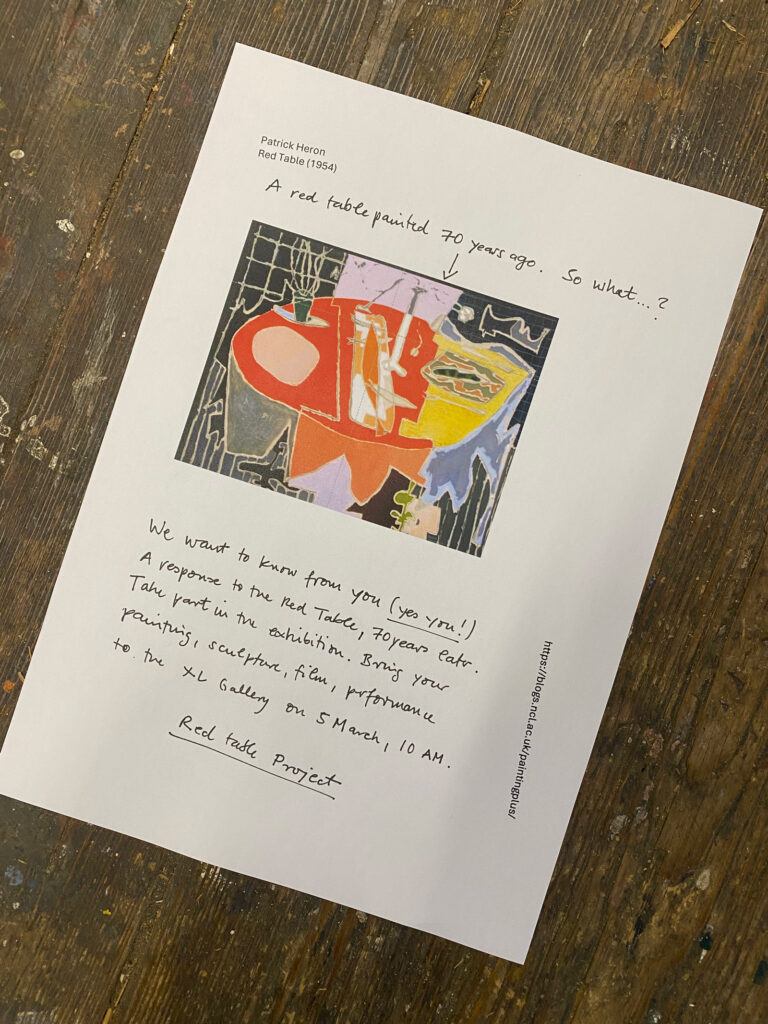 Patrick Heron
Red Table (1954)
A red table painted 70 years ago. So what...?
We want to know from you (yes you!)
A response to the Red Table, 70 years later.
Take part in the exhibition. Bring your
painting, sculpture, film, performance
to the XL Gallery on 5 March, 10 AM.
Red table Project
https://blogs.ncl.ac.uk/paintingplus/